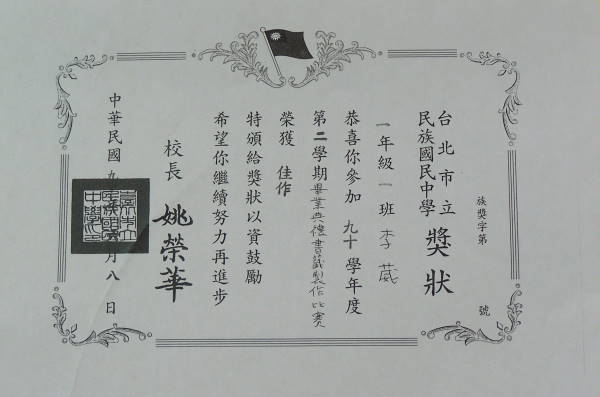 台北市立
民族國民中學
獎狀
族獎字第 號
一年級一班李葳
恭喜你參加 九十 學年度
第二學期畢業典禮書籤製作比賽
榮獲 佳作
特頒給獎狀以資鼓勵
希望你繼續努力再進步
校長 姚榮華
中華民國九 月八日